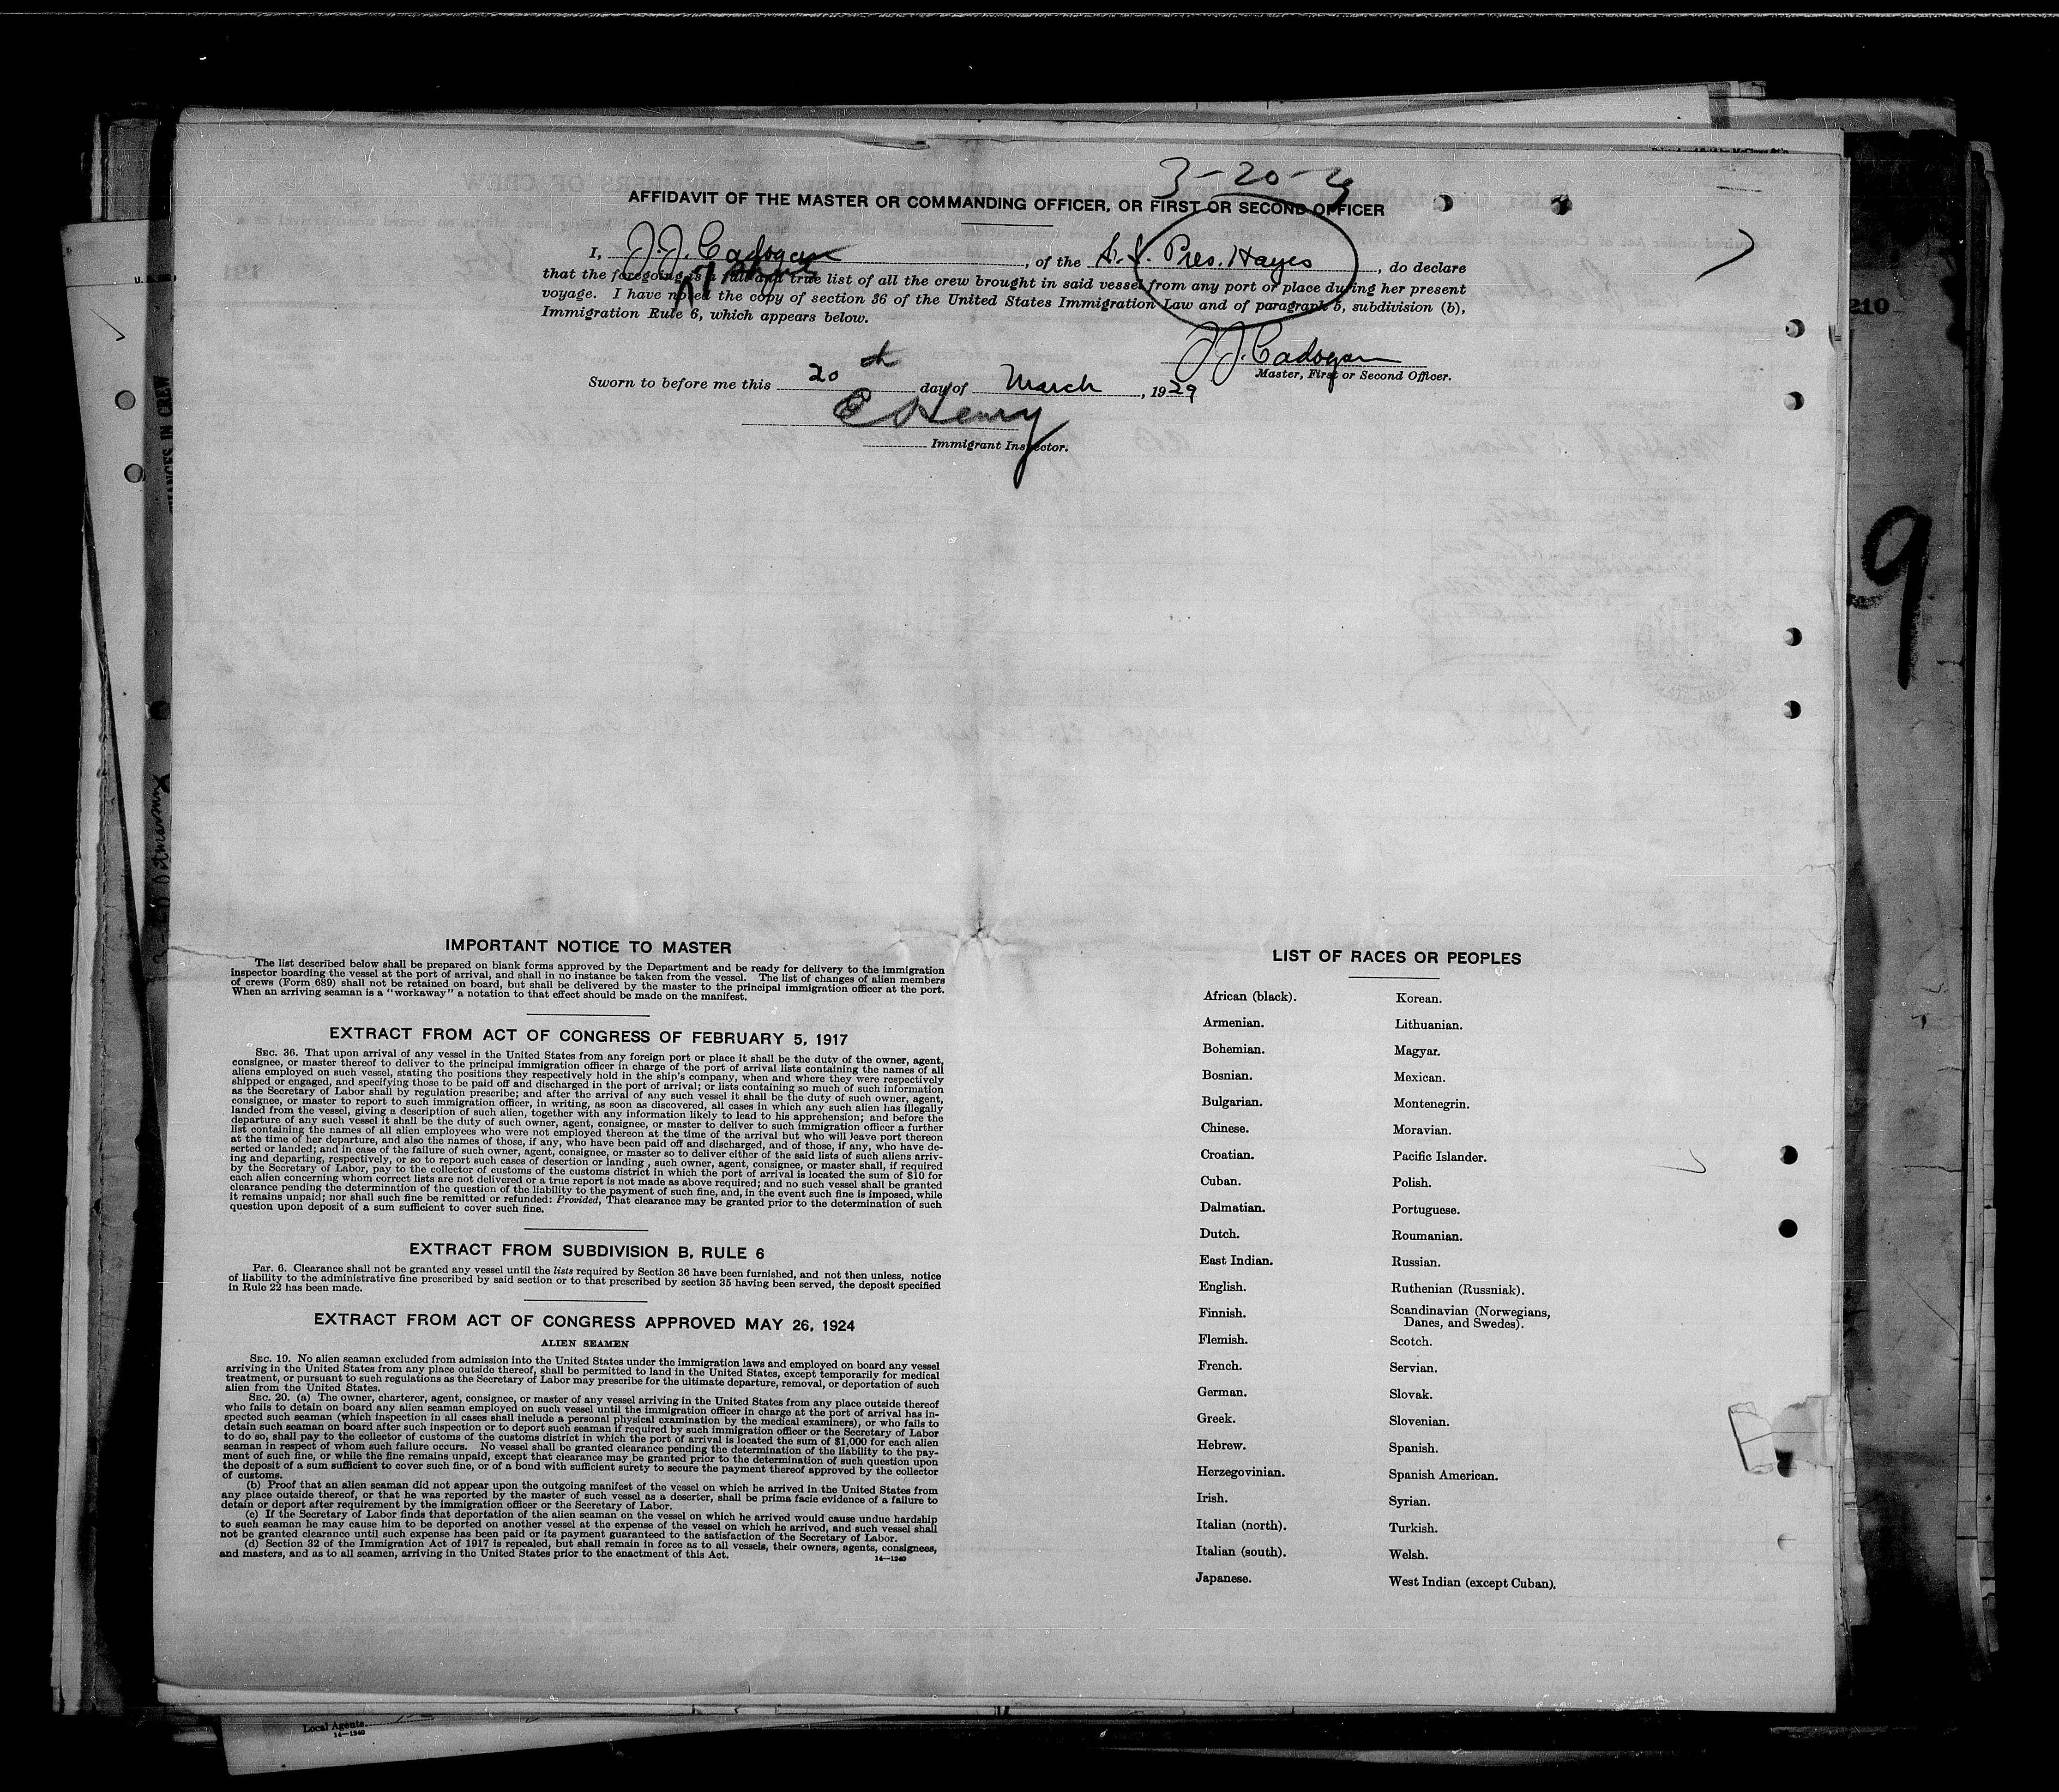 3-20-29
AFFIDAVIT OF THE MASTER OR COMMANDING OFFICER, OR FIRST OR SECOND OFFICER
I, J. J. Cadogan, of the S. S. Pres. Hayes, do declare
that the foregoing is a full and true list of all the crew brought in said vessel from any port or place during her present
voyage. I have noted the copy of section 36 of the United States Immigration Law and of paragraph 5, subdivision (b),
Immigration Rule 6, which appears below.
J. J. Cadogan
Master, First or Second Officer.
Sworn to before me this 20th day of March, 1929
E Henry
Immigrant Inspector.
210
9
IMPORTANT NOTICE TO MASTER
The list described below shall be prepared on blank forms approved by the Department and be ready for delivery to the immigration
inspector boarding the vessel at the port of arrival, and shall in no instance be taken from the vessel. The list of changes of alien members
of crews (Form 689) shall not be retained on board, but shall be delivered by the master to the principal immigration officer at the port.
When an arriving seaman is a "workaway" a notation to that effect should be made on the manifest.
EXTRACT FROM ACT OF CONGRESS OF FEBRUARY 5, 1917
SEC. 36. That upon arrival of any vessel in the United States from any foreign port or place it shall be the duty of the owner, agent,
consignee, or master thereof to deliver to the principal immigration officer in charge of the port of arrival lists containing the names of all
aliens employed on such vessel, stating the positions they respectively hold in the ship's company, when and where they were respectively
shipped or engaged, and specifying those to be paid off and discharged in the port of arrival; or lists containing so much of such information
as the Secretary of Labor shall by regulation prescribe; and after the arrival of any such vessel it shall be the duty of such owner, agent,
consignee, or master to report to such immigration officer, in writing, as soon as discovered, all cases in which any such alien has illegally
landed from the vessel, giving a description of such alien, together with any information likely to lead to his apprehension; and before the
departure of any such vessel it shall be the duty of such owner, agent, consignee, or master to deliver to such immigration officer a further
list containing the names of all alien employees who were not employed thereon at the time of the arrival but who will leave port thereon
at the time of her departure, and also the names of those, if any, who have been paid off and discharged, and of those, if any, who have de-
serted or landed; and in case of the failure of such owner, agent, consignee, or master so to deliver either of the said lists of such aliens arriv-
ing and departing, respectively, or so to report such cases of desertion or landing, such owner, agent, consignee, or master shall, if required
by the Secretary of Labor, pay to the collector of customs of the customs district in which the port of arrival is located the sum of $10 for
each alien concerning whom correct lists are not delivered or a true report is not made as above required; and no such vessel shall be granted
clearance pending the determination of the question of the liability to the payment of such fine, and, in the event such fine is imposed, while
it remains unpaid; nor shall such fine be remitted or refunded: Provided, That clearance may be granted prior to the determination of such
question upon deposit of a sum sufficient to cover such fine.
EXTRACT FROM SUBDIVISION B, RULE 6
Par. 6. Clearance shall not be granted any vessel until the lists required by Section 36 have been furnished, and not then unless, notice
of liability to the administrative fine prescribed by said section or to that prescribed by section 35 having been served, the deposit specified
in Rule 22 has been made.
EXTRACT FROM ACT OF CONGRESS APPROVED MAY 26, 1924
ALIEN SEAMEN
SEC. 19. No alien seaman excluded from admission into the United States under the immigration laws and employed on board any vessel
arriving in the United States from any place outside thereof, shall be permitted to land in the United States, except temporarily for medical
treatment, or pursuant to such regulations as the Secretary of Labor may prescribe for the ultimate departure, removal, or deportation of such
alien from the United States.
SEC. 20. (a) The owner, charterer, agent, consignee, or master of any vessel arriving in the United States from any place outside thereof
who fails to detain on board any alien seaman employed on such vessel until the immigration officer in charge at the port of arrival has in-
spected such seaman (which inspection in all cases shall include a personal physical examination by the medical examiners), or who fails to
detain such seaman on board after such inspection or to deport such seaman if required by such immigration officer or the Secretary of Labor
to do so, shall pay to the collector of customs of the customs district in which the port of arrival is located the sum of $1,000 for each alien
seaman in respect of whom such failure occurs. No vessel shall be granted clearance pending the determination of the liability to the pay-
ment of such fine, or while the fine remains unpaid, except that clearance may be granted prior to the determination of such question upon
the deposit of a sum sufficient to cover such fine, or of a bond with sufficient surety to secure the payment thereof approved by the collector
of customs.
(b) Proof that an alien seaman did not appear upon the outgoing manifest of the vessel on which he arrived in the United States from
any place outside thereof, or that he was reported by the master of such vessel as a deserter, shall be prima facie evidence of a failure to
detain or deport after requirement by the immigration officer or the Secretary of Labor.
(c) If the Secretary of Labor finds that deportation of the alien seaman on the vessel on which he arrived would cause undue hardship
to such seaman he may cause him to be deported on another vessel at the expense of the vessel on which he arrived, and such vessel shall
not be granted clearance until such expense has been paid or its payment guaranteed to the satisfaction of the Secretary of Labor.
(d) Section 32 of the Immigration Act of 1917 is repealed, but shall remain in force as to all vessels, their owners, agents, consignees,
and masters, and as to all seamen, arriving in the United States prior to the enactment of this Act.
14—1240
LIST OF RACES OR PEOPLES
African (black).
Armenian.
Bohemian.
Bosnian.
Bulgarian.
Chinese.
Croatian.
Cuban.
Dalmatian.
Dutch.
East Indian.
English.
Finnish.
Flemish.
French.
German.
Greek.
Hebrew.
Herzegovinian.
Irish.
Italian (north).
Italian (south).
Japanese.
Korean.
Lithuanian.
Magyar.
Mexican.
Montenegrin.
Moravian.
Pacific Islander.
Polish.
Portuguese.
Roumanian.
Russian.
Ruthenian (Russniak).
Scandinavian (Norwegians,
Danes, and Swedes).
Scotch.
Servian.
Slovak.
Slovenian.
Spanish.
Spanish American.
Syrian.
Turkish.
Welsh.
West Indian (except Cuban).
Local Agents
14—1240